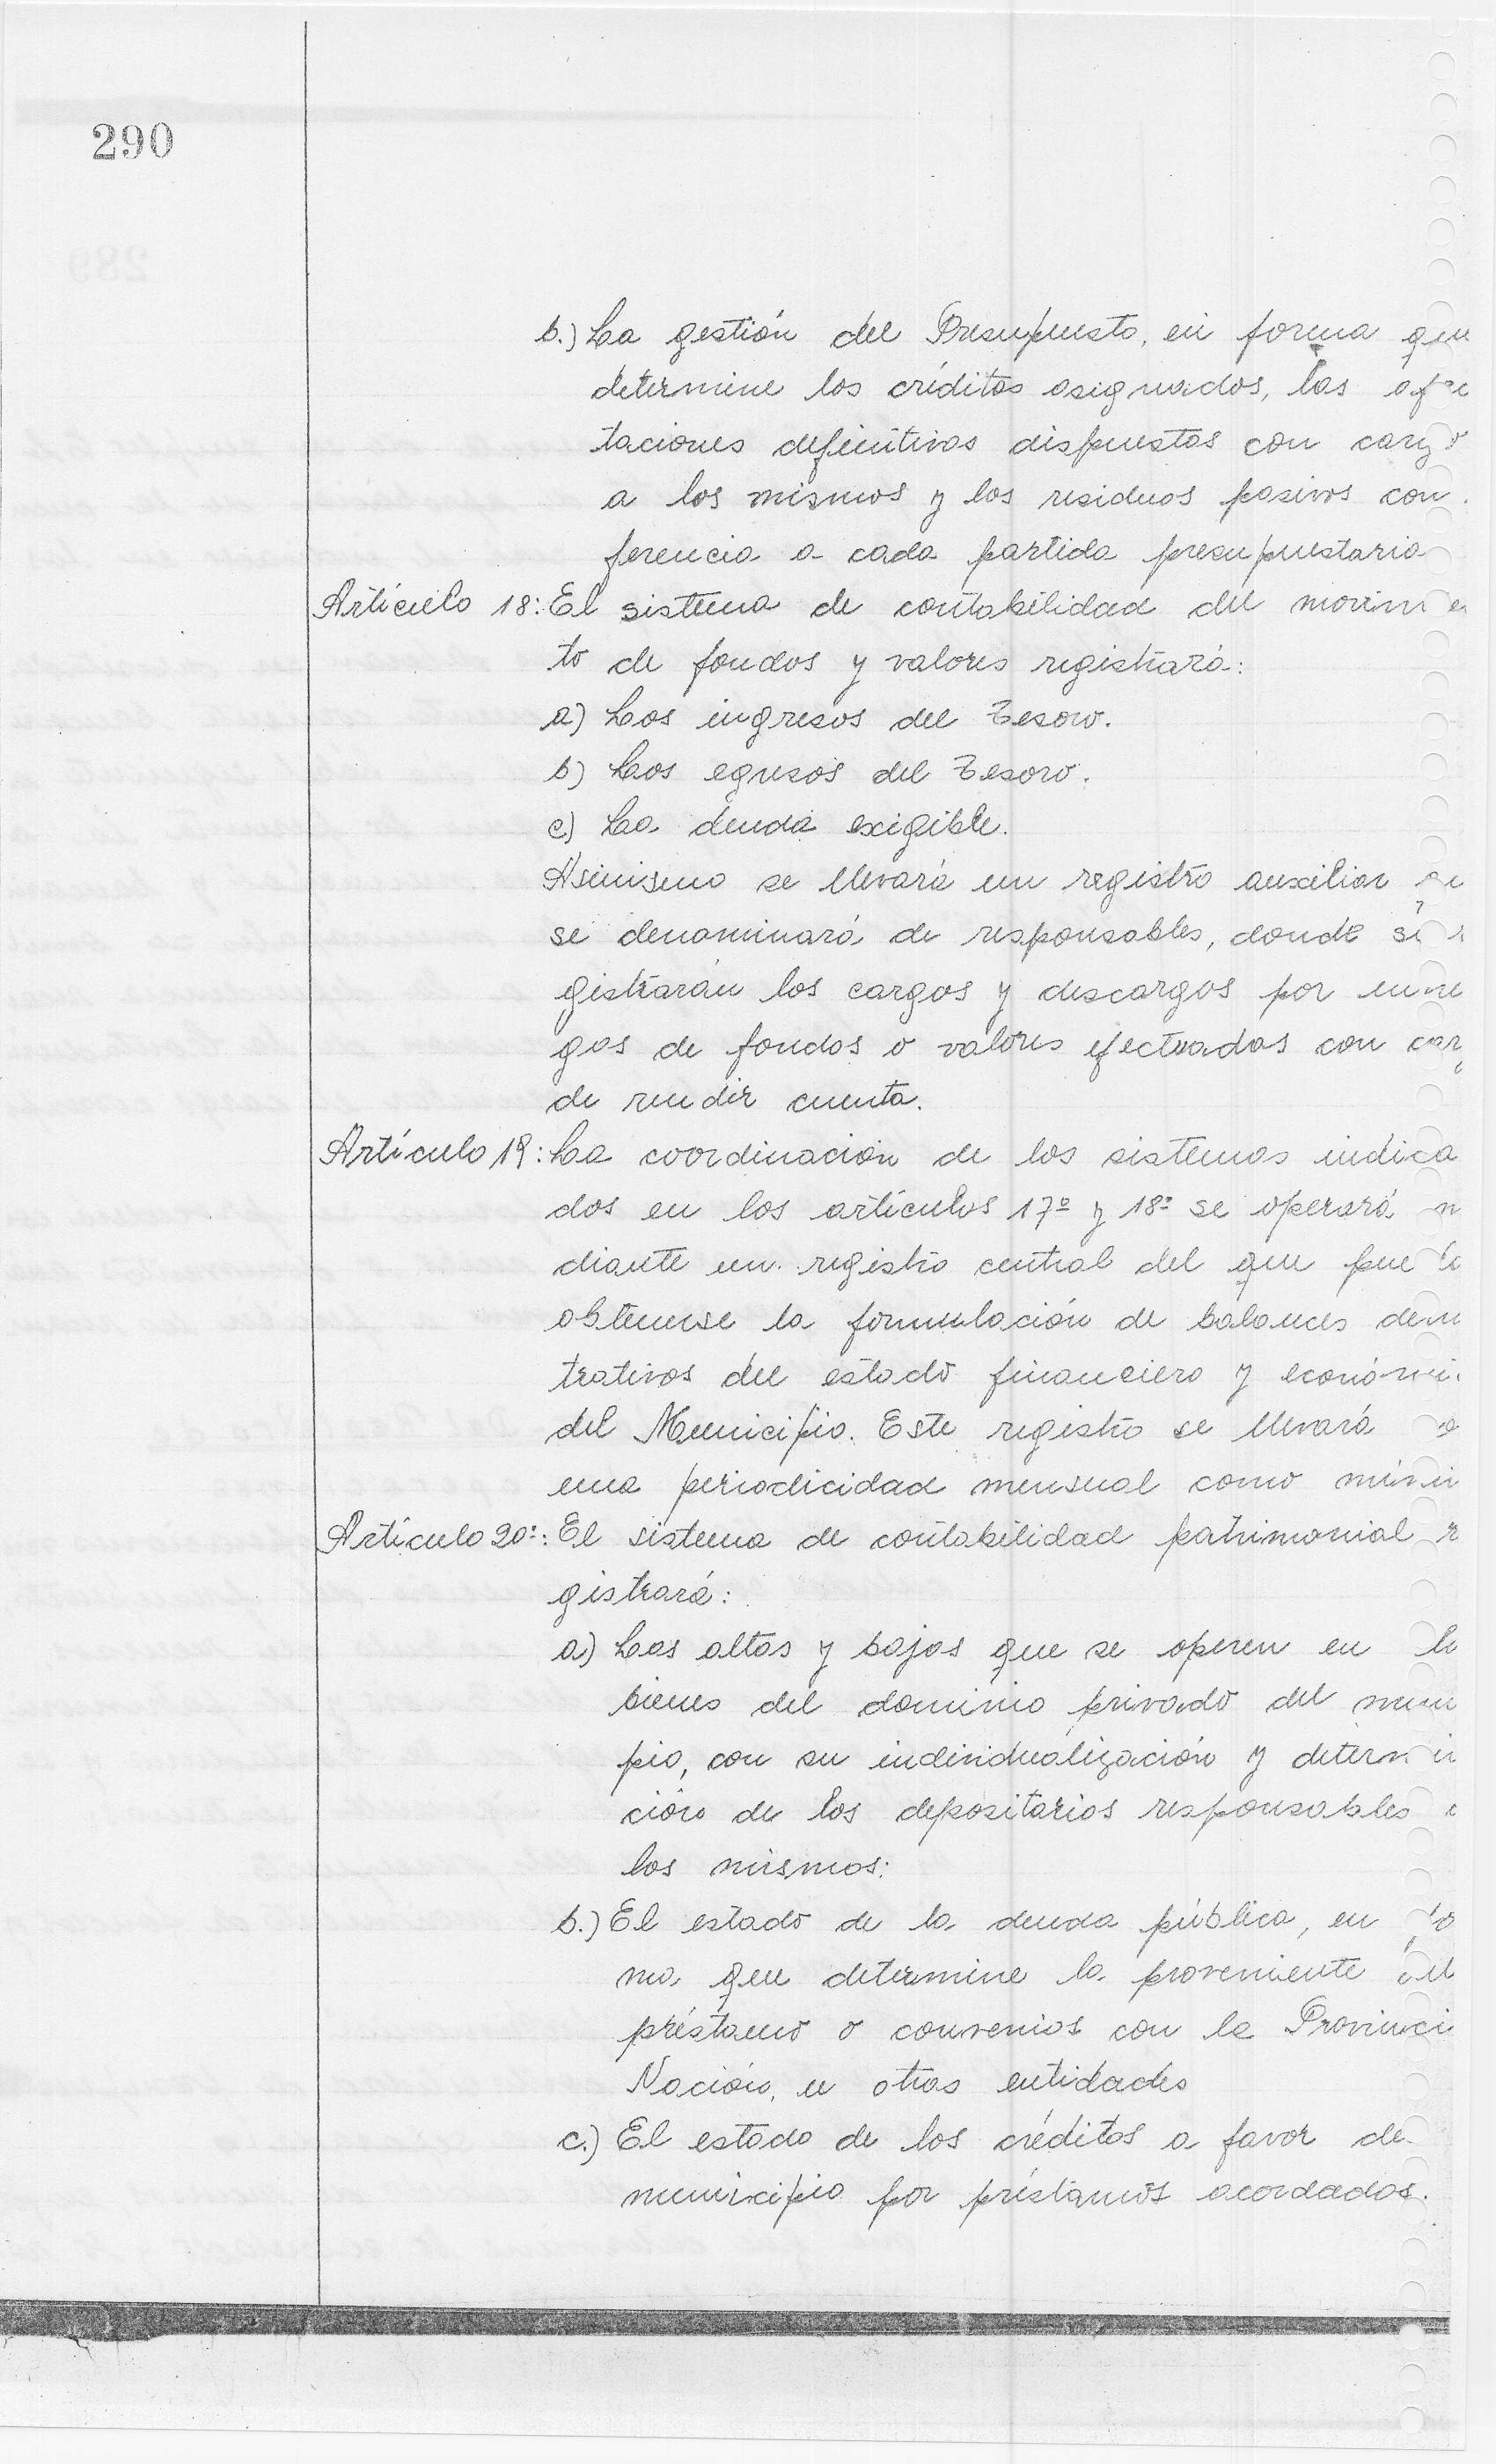 290
b.) La gestión del Presupuesto, en forma que
determine los créditos asignados, las afec
taciones definitivas dispuestas con cargo
a los mismos y los residuos pasivos con
ferencia a cada partida presupuestaria
Artículo 18: El sistema de contabilidad del movimien
to de fondos y valores registrará:
a) Los ingresos del Tesoro.
b) Los egresos del Tesoro.
c) La deuda exigible.
Asimismo se llevará un registro auxiliar que
se denominará de responsables, donde se r
gistrarán los cargos y descargos por entre
gas de fondos o valores efectuadas con carg
de rendir cuenta.
Artículo 19: La coordinación de los sistemas indica
dos en los artículos 17º y 18º se operará m
diante un registro central del que pueda
obtenerse la formulación de balances dem
trativos del estado financiero y económi
del Municipio. Este registro se llevará
una periodicidad mensual como mínim
Artículo 20º: El sistema de contabilidad patrimonial r
gistrará:
a) Las altas y bajas que se operen en lo
bienes del dominio privado del muni
pio, con su individualización y determin
ción de los depositarios responsables
los mismos:
b.) El estado de la deuda pública, en fo
ma que determine la proveniente del
préstamo o convenios con la Provinci
Nación, u otras entidades
c.) El estado de los créditos a favor de
municipio por préstamos acordados.